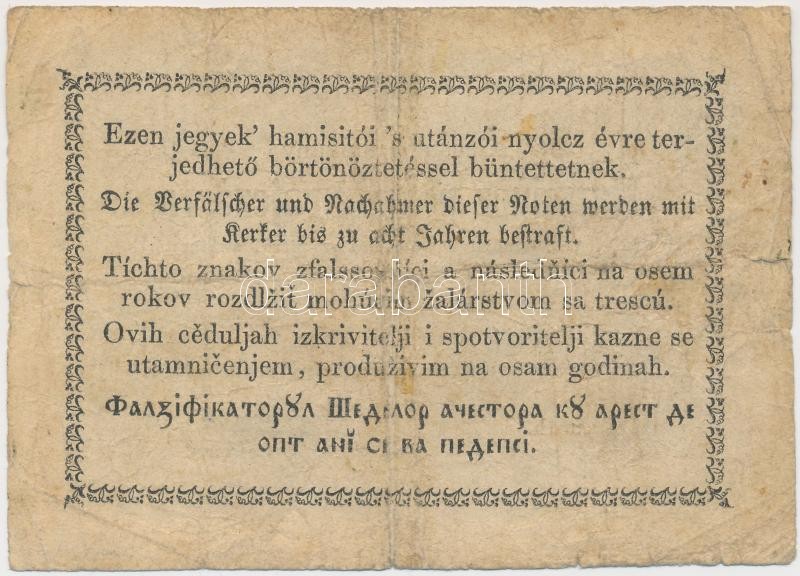 Ezen jegyek’ hamisitói ’s utánzói nyolcz évre ter-
jedhető börtönöztetéssel büntettetnek.
Die Verfälscher und Nachahmer dieser Noten werden mit
Kerker bis zu acht Jahren bestraft.
Tíchto znakov zfalssovníci a následňíci na osem
rokov rozdlžiť mohúcim žalárstvom sa trescú.
Ovih cěduljah izkrivitelji i spotvoritelji kazne se
utamničenjem, produživim na osam godinah.
Фалꙁiфiкаторꙋл Шеделор ачестора кꙋ арест де
опт анĭ се ва педепсi.
darabanth